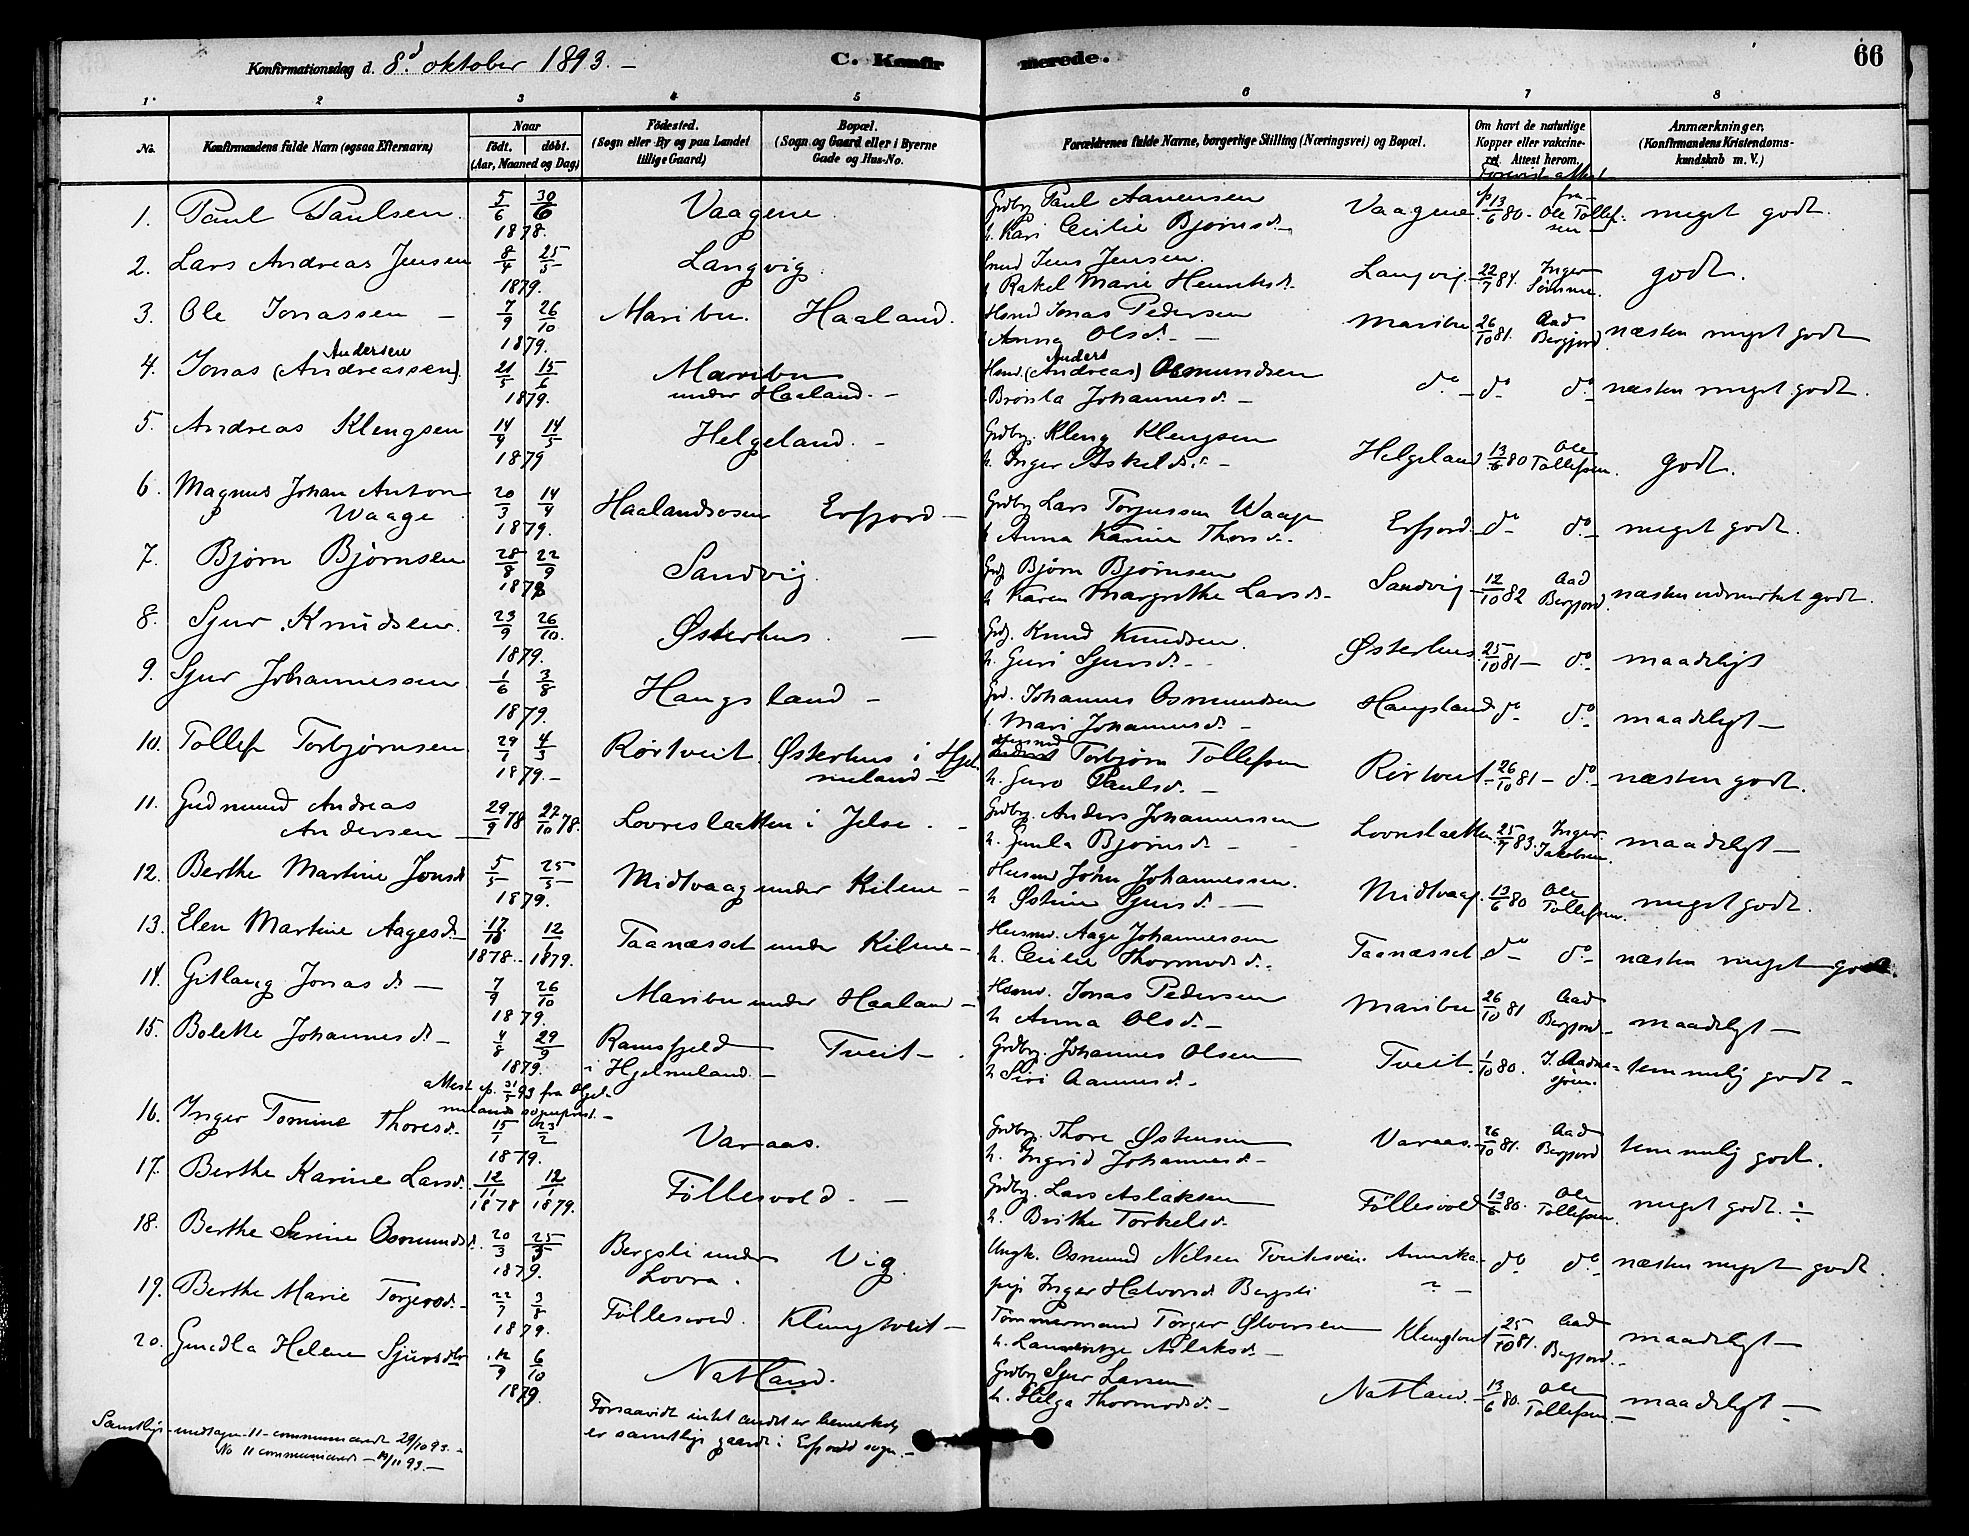 Konfirmationsdag d. 8.d oktober 1893. – C. Konfirmerede. 66
1. 2 3 4 5 6 7 8
No. Konfirmandens fulde Navn (ogsaa Efternavn) Naar født. døbt. (Aar, Maaned og Dag) Födested. (Sogn eller By og paa Landet tillige Gaard) Bopæl. (Sogn og Gaard eller i Byerne Gade og Hus-No. Forældrenes fulde Navne, borgerlige Stilling (Næringsvei) og Bopæl. Om havt de naturlige Kopper eller vakcineret. Attest herom. Anmærkninger. (Konfirmandens Kristendomskundskab m. V.)
1. Paul Paulsen. 5/6 30/6 1878. Vaagene. Grdbr. Paul Aanensen h. Kari Cecilie Bjørnsd. – Vaagene 13/6 80. Ole Tollefsen meget godt.
2. Lars Andreas Jensen 8/4 25/5 1879. Langvig. Jens Jensen. h. Rakel Marie Henriksd. Langvig 22/7 84. Inger Sømme. godt.
3. Ole Jonassen – 7/9 26/10 1879. Maribu. Haaland. Husmd Jonas Pedersen h. Anna Olsd. – Maribu 26/10 81. Aad Bergjord næsten meget godt
4. Jonas (Andreassen) Andersen 21/5 15/6 1879. Maribu under Haaland. – Husmd. (Andreas) Anders Osmundsen h. Brøisla Johannesd. – do – do do – næsten meget godt.
5. Andreas Klengsen 14/4 14/5 1879 Helgeland. – Grdbr. Kleng Klengsen h. Inger Askelsd. – Helgeland 13/6 80 Ole Tollefsen. godt.
6. Magnus Johan Anton Waage 20/3 14/4 1879. Haalandsosen Erfjord – Grdbr Lars Torjussen Waage h. Anna Karine Thorsd. Erfjord. do – do – meget godt.
7. Bjørn Bjørnsen 28/8 22/9 1878 Sandvig. Grdbr Bjørn Bjørnsen h Karen Margrethe Larsd. – Sandvig 12/10 82 Aad Bergjord. næsten udmerket godt.
8. Sjur Knudsen. 23/9 26/10. 1879. Østerhus. – Grdbr. Knud Knudsen. h. Guri Sjursd. – Østerhus. 25/10 81 – do – maadeligt
9. Sjur Johannessen 1/6 3/8 1879. Hangsland – Grd. Johannes Osmundsen h. Mari Johannesd. – Hangsland do – do – maadeligt –
10. Tollef Torbjørnsen 29/7 4/3 1879. – Rørtveit. Østerhus i Hjelmeland – Husmd Torbjørn Tollefsen h. Guro Paulsd. – Rørtveit – 26/10 81 – do – næsten godt.
11. Gudmund Andreas Andersen – 29/9 78 27/10 78. Lovreslætten i Jelse. – Grdbr. Anders Johannessen h. Gunla Bjørnsd. – Lovreslætten. 25/7 83. Inger Jakobsen. maadeligt –
12. Berthe Martine Jonsd. 5/5 25/5 1879. Midtvaag under Kilene – Husmd John Johannessen. h Østine Sjursd. – Midtvaag. 13/6 80 Ole Tollefsen. meget godt.
13. Elen Martine Aagesd. – 17/10 1878. – 12/1 1879. Taanæsset under Kilene – Husmd. Aage Johannessen h. Cecilie Thormodsd. – Taanæsset do – do – næsten meget godt.
14. Gitlaug Jonasd. – 7/9 26/10 1879. Maribu under Haaland – Husmd. Jonas Pedersen h Anna Olsd. – Maribu 26/10 81 Aad Bergjord – maadeligt –
15. Bolette Johannesd. – 4/8 29/9 1879. Ramsfjeld i Hjelmeland. – Tveit – Grdbr. Johannes Olsen h Siri Aamundsd. – Tveit. 1/10 80. temmelig godt –
attest af 31/5 93 fra Hjelmelands sogneprest. –
16. Inger Tomine Thoresd. 15/1 23/2 1879. Varaas. Grdbr. Thore Østensen h. Ingrid Johannesd. – Varaas. 26/10 81. Aad Bergjord temmelig godt.
17. Berthe Karine Larsd. 12/11 1878 12/1 1879. Føllesvold. – Grdbr. Lars Aslaksen h. Brithe Torkelsd. Føllesvold 13/6 80. Ole Tollefsen. meget godt.
18. Berthe Serine Osmundsd. 20/3 25/5 1879. Bergsli under Lovra. Vig. Ungk. Osmund Nelsen Tveitsveien Amerika. pige Inger Halvorsd. Bergsli " – do do – næsten meget godt.
19. Berthe Marie Torgersd. – 22/7 3/8 1879. Føllesvold. Klungtveit – Tømmermand Torger Østensen h. Aslaksd. – Klungtveit 25/10 81. Aad Bergjord. – maadeligt –
20. Gundla Helene Sjursdtr 12/9 6/10 1879. Natland. Grdbr Sjur Larsen h. Helga Thormodsd. – Natland. – 13/6 80. Ole Tollefsen. – maadeligt –
Samtlige undtagen 11 communicerede 29/10 93. –
No 11 communicerede – 19/11 93. –
Forsaavidt intet andet er bemerket,
er samtlige gaarde i Erfjord sogn. –